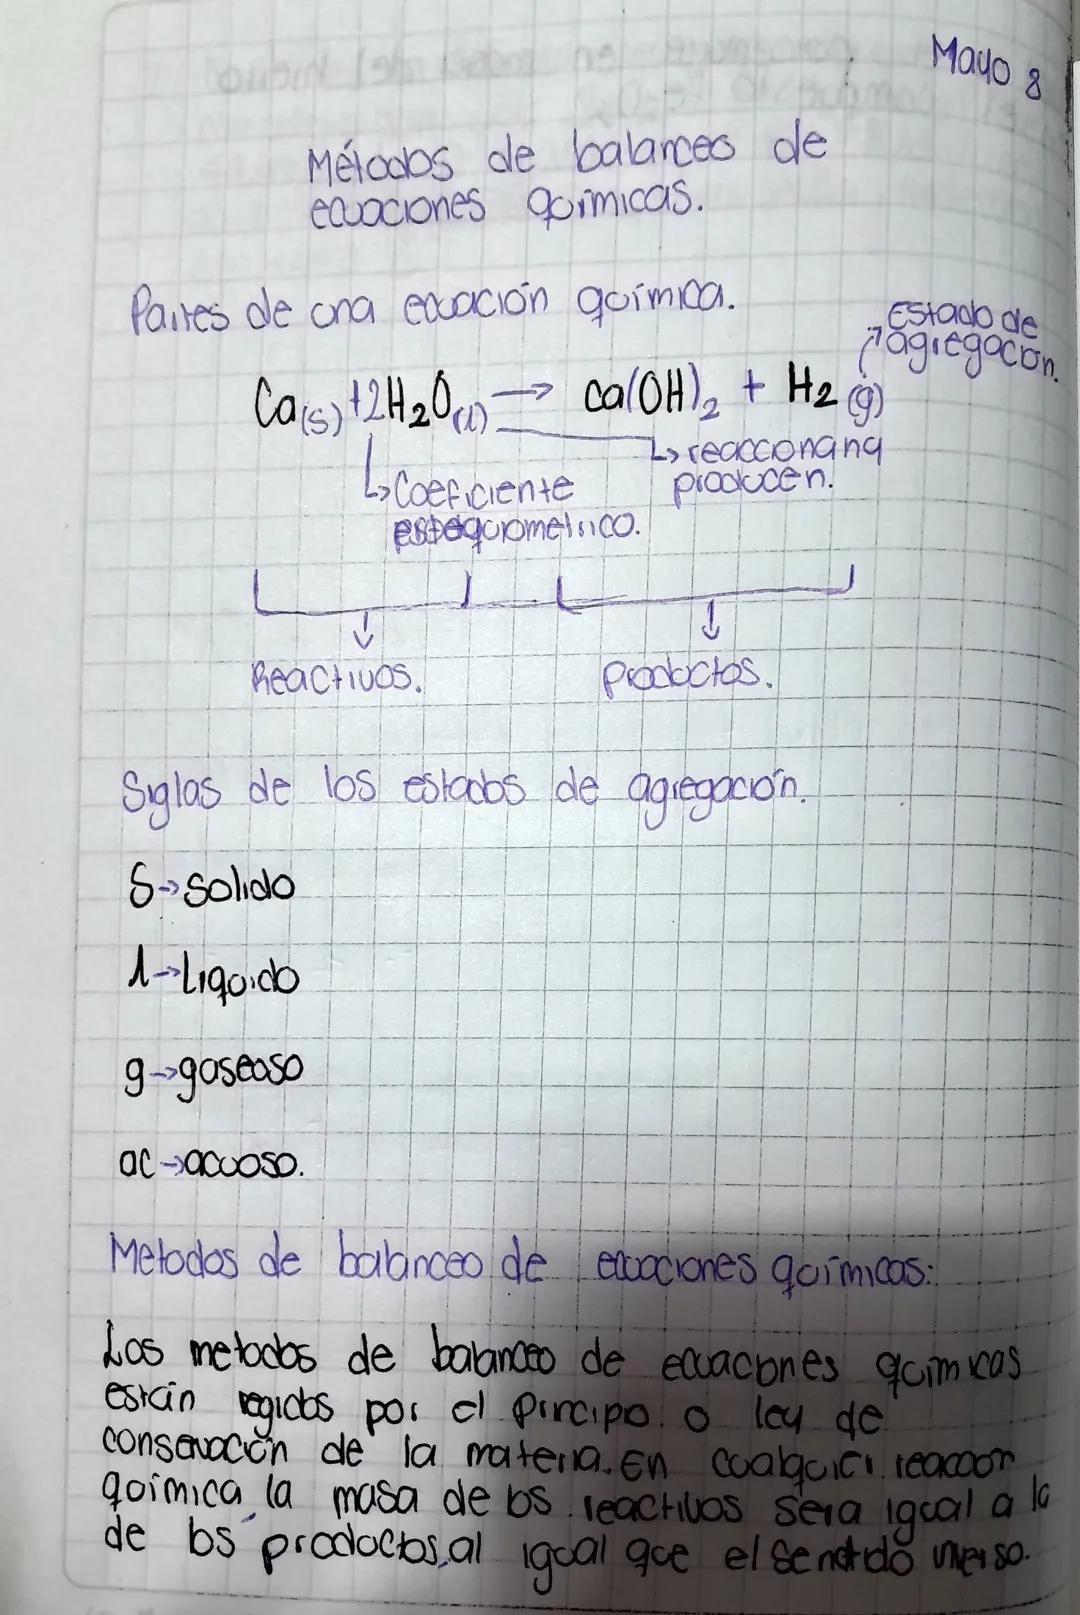 Mayo 8
Métodos de balanceo de
ecuaciones químicas.
Partes de una ecuación química.
Estado de
agregación.
Ca(s)+2H₂O(l) → ca(OH)₂ + H₂(g)
↳ reaccionana
producen.
↳ Coeficiente
estequiometrico.
Reactivos.
productos.
Siglas de los estados de agregación.
S→solido
l→Liquido
g→gaseoso
ac→acuoso.
Metodos de balanceo de ecuaciones químicas:
Los metodos de balanceo de ecuaciones químicas
están regidos por el principio o ley de
conservación de la materia. En cualquier reaccion
química la masa de los reactivos sera igual a la
de los productos, al igual que el sentido inverso.